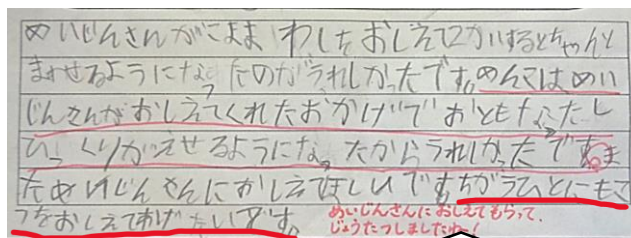 めいじんさんがこままわしをおしえて2かいするとちゃんと
まわせるようになったのがうれしかったです。めんこはめい
じんさんがおしえてくれたおかげでおともなったし
ひっくりかえせるようになったからうれしかったです。ま
ためいじんさんにおしえてほしいです。ちがうひとにもこ
つをおしえてあげたいです。
めいじんさんにおしえてもらって、
じょうたつしましたねー!